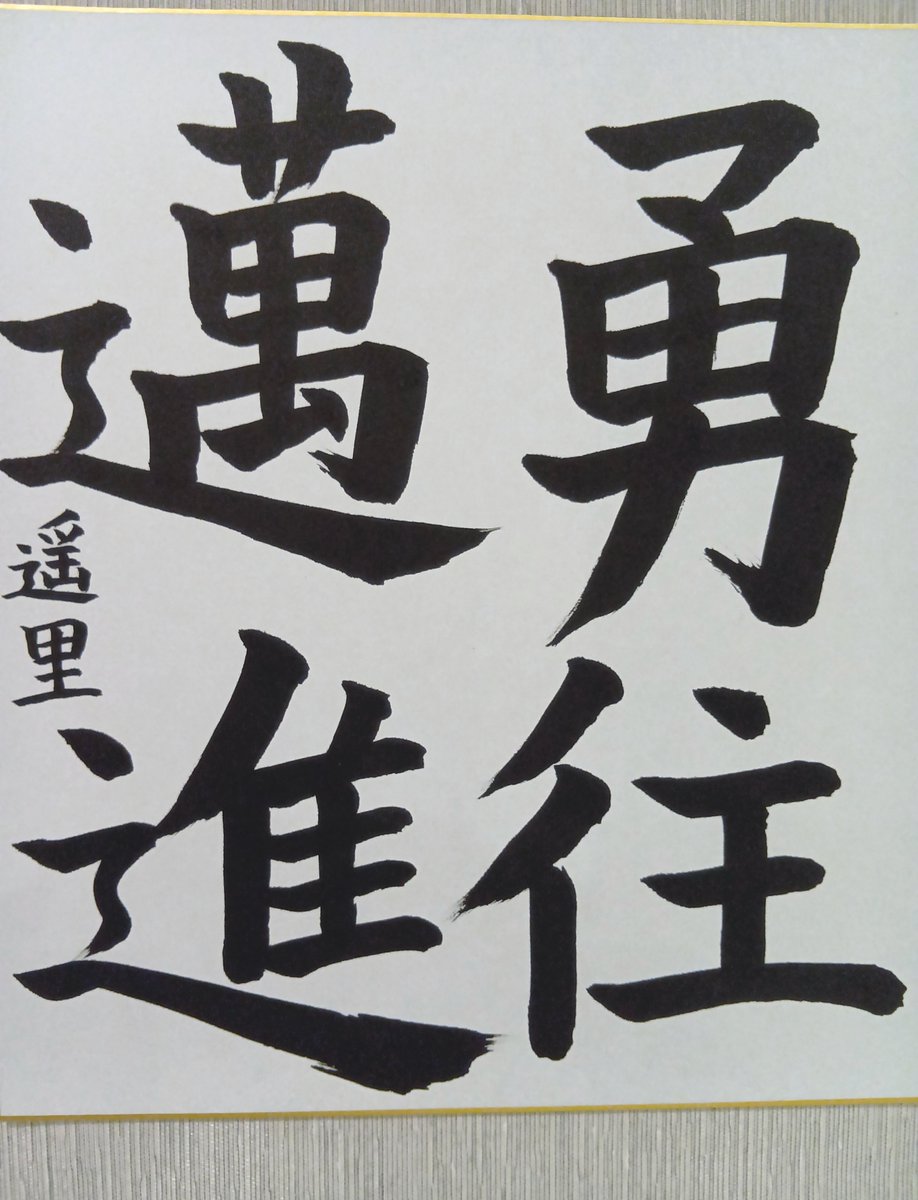 勇往
邁進
遥里